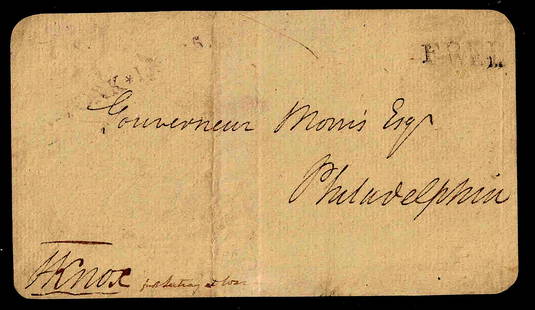 FREE
Gouverneur Morris Esqr
Philadelphia
HKnox first Secretary at War